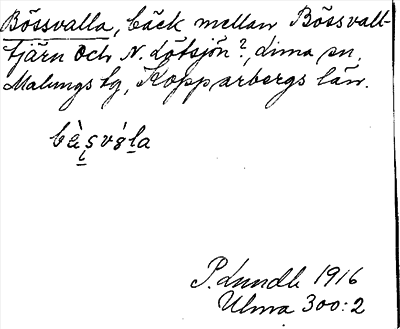 Bössvalla, bäck mellan Bössvall-
tjärn och N. Lötsjön?, Lima sn,
Malungs tg, Kopparbergs län.
P. Lundb 1916
Ulma 300:2